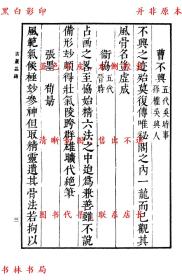 黑白影印
開非原本
曹不興 五代吳時事孫權吳興人
不興之迹殆莫復傳唯秘閣之內一龍而已觀其
風骨名豈虛成
衛協 五代晉時
占畫之略至協始精六法之中迨為兼善雖不說
備形妙頗得壯氣陵跨群雄曠代絕筆
張墨 荀勖
風範氣候極妙參神但取精靈遺其骨法若拘以
古畫品錄
三
书林书局